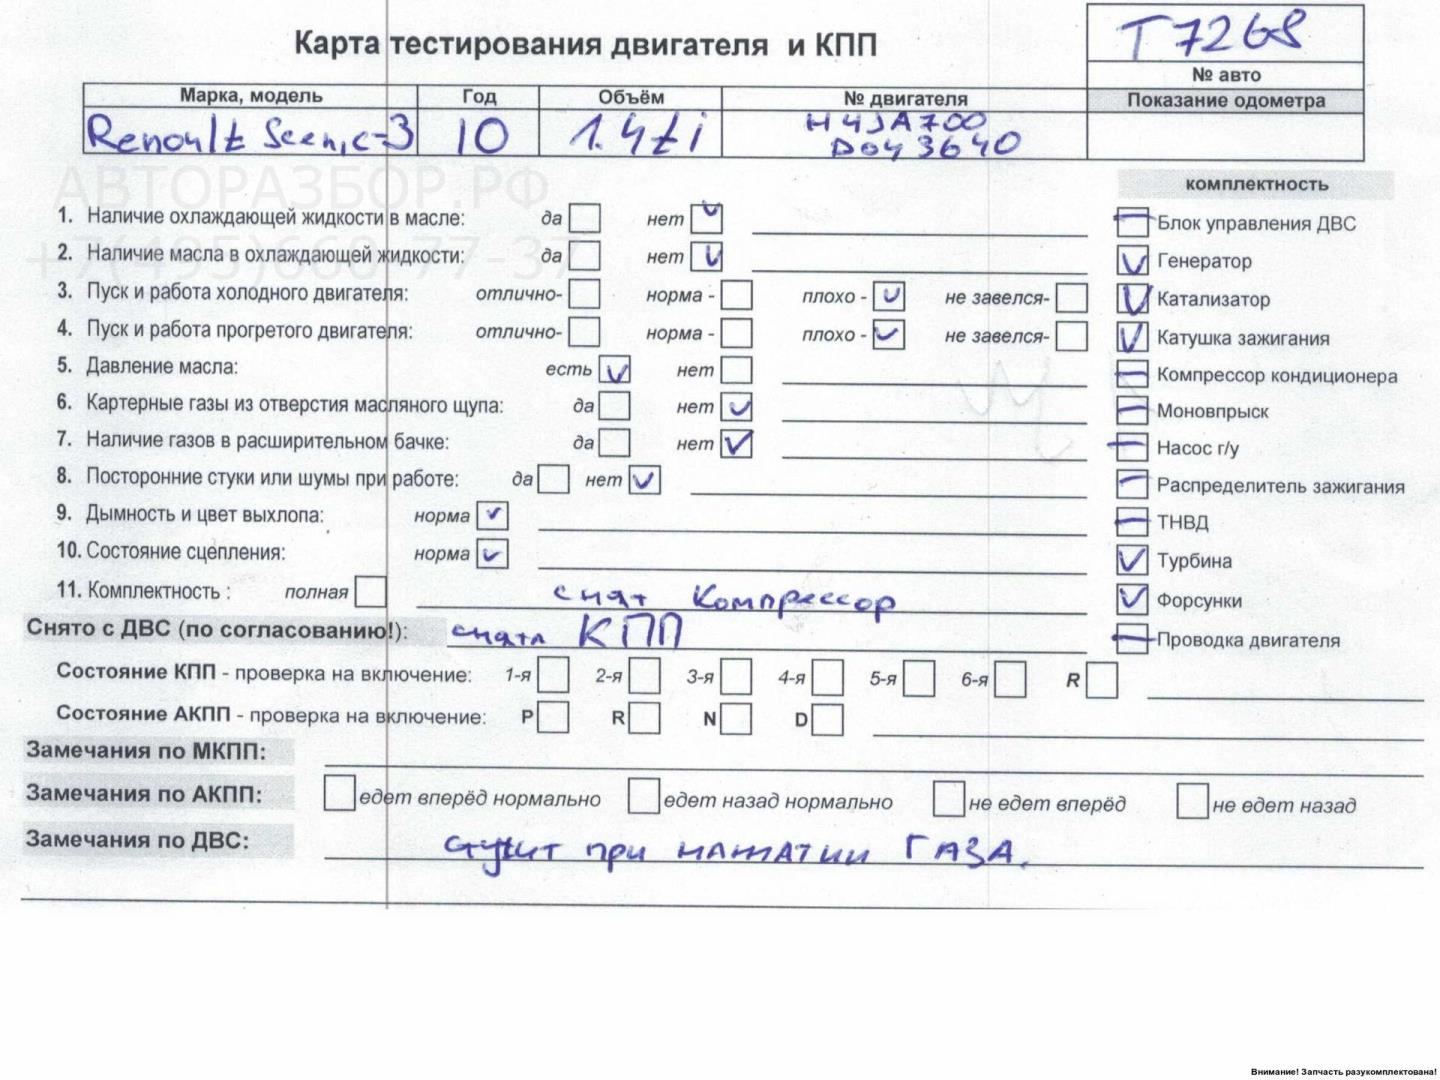 Карта тестирования двигателя и КПП
T7268
№ авто
Марка, модель Год Объём № двигателя Показание одометра
Renault Scenic-3 10 1.4ti H4JA700
D043640
АВТОРАЗБОР.РФ
+7(495)660-77-37
комплектность
1. Наличие охлаждающей жидкости в масле: да нет
Блок управления ДВС
2. Наличие масла в охлаждающей жидкости: да нет
Генератор
3. Пуск и работа холодного двигателя: отлично- норма - плохо - не завелся-
Катализатор
4. Пуск и работа прогретого двигателя: отлично- норма - плохо - не завелся-
Катушка зажигания
5. Давление масла: есть нет
Компрессор кондиционера
6. Картерные газы из отверстия масляного щупа: да нет
Моновпрыск
7. Наличие газов в расширительном бачке: да нет
Насос г/у
8. Посторонние стуки или шумы при работе: да нет
Распределитель зажигания
9. Дымность и цвет выхлопа: норма
ТНВД
10. Состояние сцепления: норма
Турбина
11. Комплектность : полная снят Компрессор
Форсунки
Снято с ДВС (по согласованию!): снята КПП
Проводка двигателя
Состояние КПП - проверка на включение: 1-я 2-я 3-я 4-я 5-я 6-я R
Состояние АКПП - проверка на включение: P R N D
Замечания по МКПП:
Замечания по АКПП: едет вперёд нормально едет назад нормально не едет вперёд не едет назад
Замечания по ДВС: при нажатии ГАЗА.
Внимание! Запчасть разукомплектована!